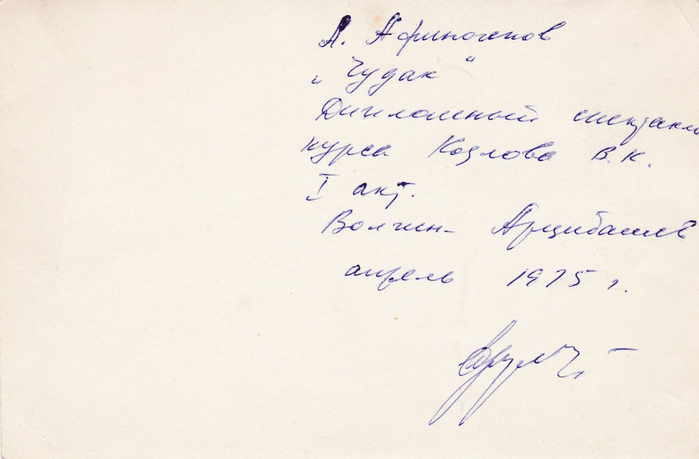 А. Афиногенов
„Чудак“
Дипломный спектакль
курса Козлова В.К.
I акт.
Волгин - Арцибашев
апрель 1975 г.